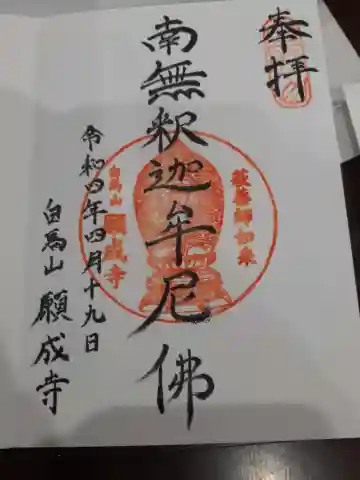 奉拝
南無釈迦牟尼佛
薬師如来
白馬山
願成寺
令和四年四月十九日
白馬山 願成寺